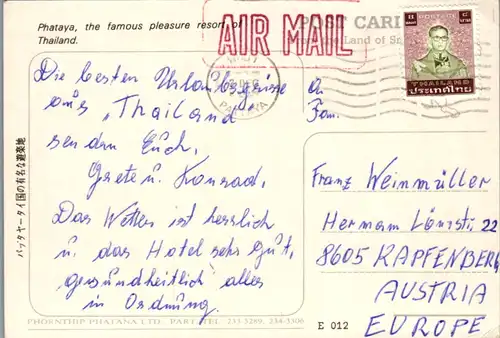 Phataya, the famous pleasure resort of
Thailand.
POST CARD
Land of
AIR MAIL
PATTAYA
8 8
BAHT บาท
POSTAGE
THAILAND
ประเทศไทย
Die besten Urlaubsgrüsse
aus "Thailand"
senden Euch,
Grete u. Konrad,
Das Wetter ist herrlich
u. das Hotel sehr gut,
gesundheitlich alles
in Ordnung.
An
Fam.
Franz Weinmüller
Hermann Lönsstr. 22
8605 KAPFENBERG
AUSTRIA
EUROPE
パッタヤータイ国の有名な遊楽地
PHORNTHIP PHATANA LTD. PART. TEL. 233-5289, 234-3306
E 012